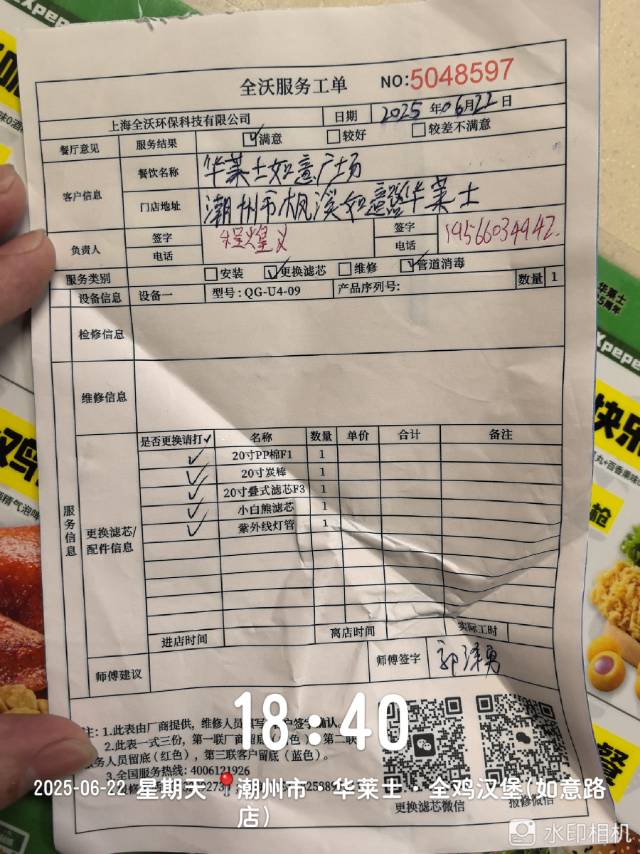 全沃服务工单 NO:5048597
上海全沃环保科技有限公司 日期 2025年06月22日
餐厅意见 服务结果 ✓满意 □较好 □较差不满意
客户信息 餐饮名称 华莱士如意广场
门店地址 潮州市枫溪如意路华莱士
负责人 签字 电话 签字 电话 19566034442
服务类别 □安装 ✓更换滤芯 □维修 ✓管道消毒
设备信息 设备一 型号:QG-U4-09 产品序列号: 数量 1
检修信息
维修信息
服务信息
更换滤芯/配件信息
是否更换请打✓ 名称 数量 单价 合计 备注
✓ 20寸PP棉F1 1
✓ 20寸炭棒 1
✓ 20寸叠式滤芯F3 1
✓ 小白熊滤芯 1
✓ 紫外线灯管 1
进店时间 离店时间 实际工时
师傅建议 师傅签字
注:1.此表由厂商提供,维修人员填写
2.此表一式三份,第一联厂商留底
务人员留底(红色),第三联客户留底(蓝色)。
3.全国服务热线:4006121926
更换滤芯微信 报修微信
18:40
2025-06-22 星期天 潮州市·华莱士·全鸡汉堡(如意路店)
水印相机
华莱士
快乐
餐